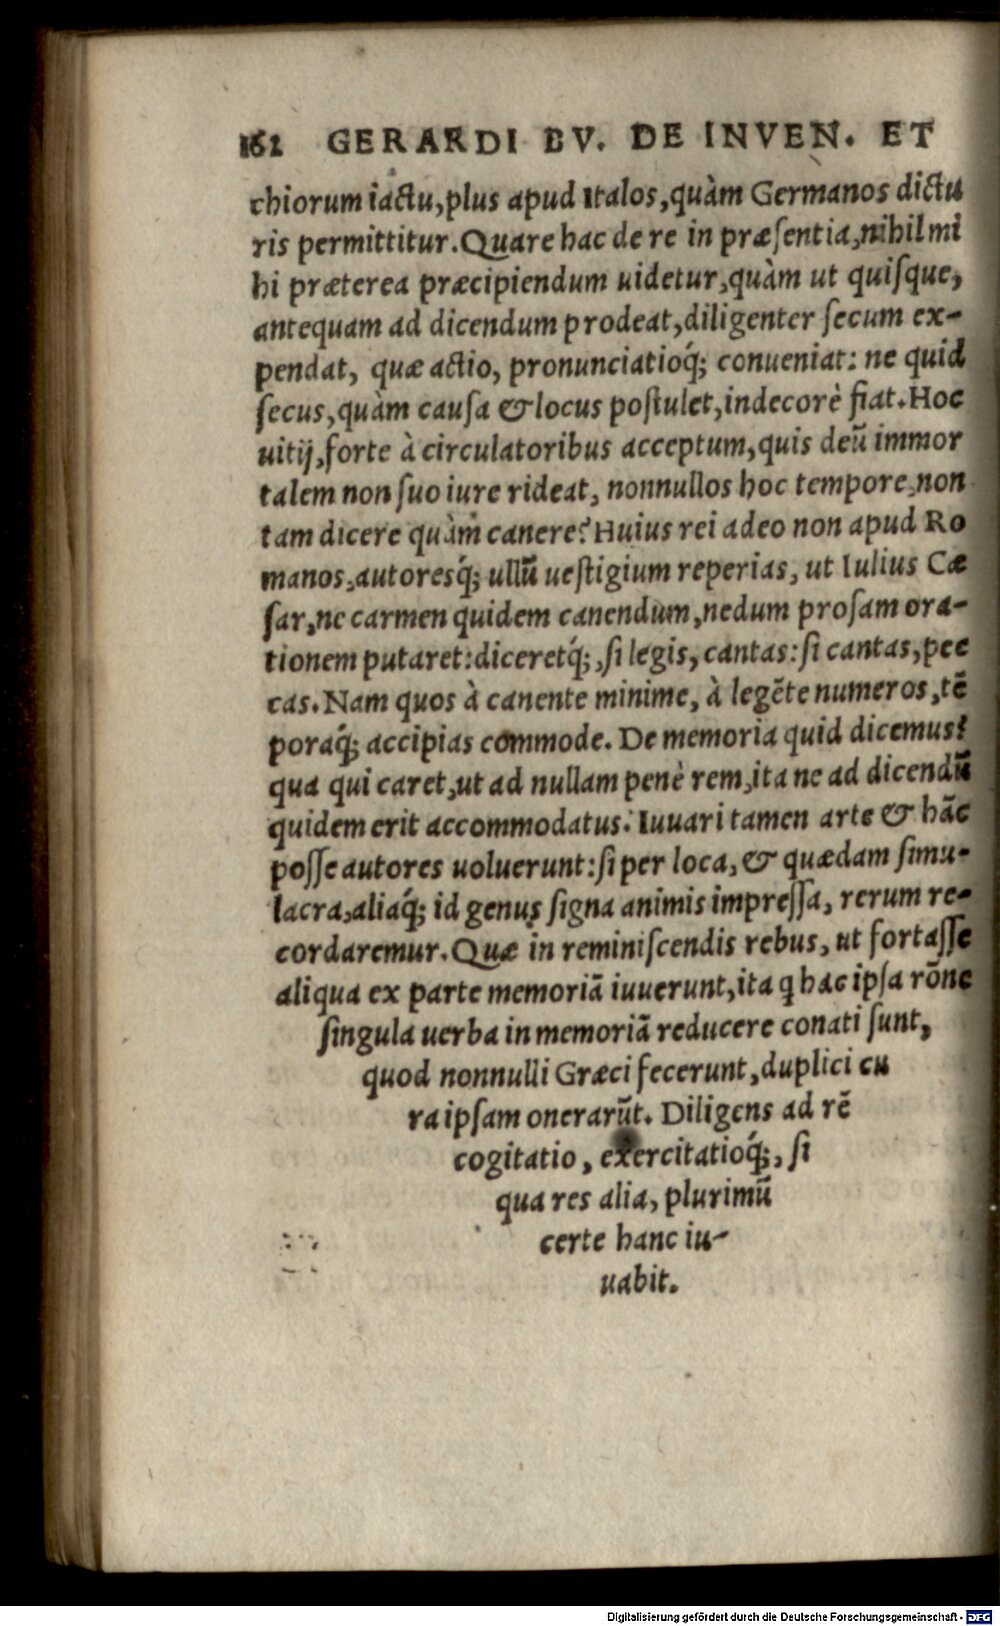 162 GERARDI BV. DE INVEN. ET
chiorum iactu, plus apud Italos, quàm Germanos dictu
ris permittitur. Quare hac de re in præsentia, nihil mi
hi præterea præcipiendum uidetur, quàm ut quisque,
antequam ad dicendum prodeat, diligenter secum ex-
pendat, quæ actio, pronunciatioq́; conueniat: ne quid
secus, quàm causa & locus postulet, indecorè fiat. Hoc
uitij, forte à circulatoribus acceptum, quis deũ immor
talem non suo iure rideat, nonnullos hoc tempore, non
tam dicere quàm canere? Huius rei adeo non apud Ro
manos, autoresq́; ullũ uestigium reperias, ut Iulius Cæ
sar, ne carmen quidem canendum, nedum prosam ora-
tionem putaret: diceretq́;, si legis, cantas: si cantas, pec
cas. Nam quos à canente minime, à legẽte numeros, tẽ
poraq́; accipias commode. De memoria quid dicemus?
qua qui caret, ut ad nullam penè rem, ita ne ad dicendũ
quidem erit accommodatus. Iuuari tamen arte & hãc
posse autores uoluerunt: si per loca, & quædam simu-
lacra, aliaq́; id genus signa animis impressa, rerum re-
cordaremur. Quæ in reminiscendis rebus, ut fortasse
aliqua ex parte memoriã iuuerunt, ita q hac ipsa rõne
singula uerba in memoriã reducere conati sunt,
quod nonnulli Græci fecerunt, duplici cu
ra ipsam onerarũt. Diligens ad rẽ
cogitatio, exercitatioq́;, si
qua res alia, plurimũ
certe hanc iu-
uabit.
Digitalisierung gefördert durch die Deutsche Forschungsgemeinschaft - DFG